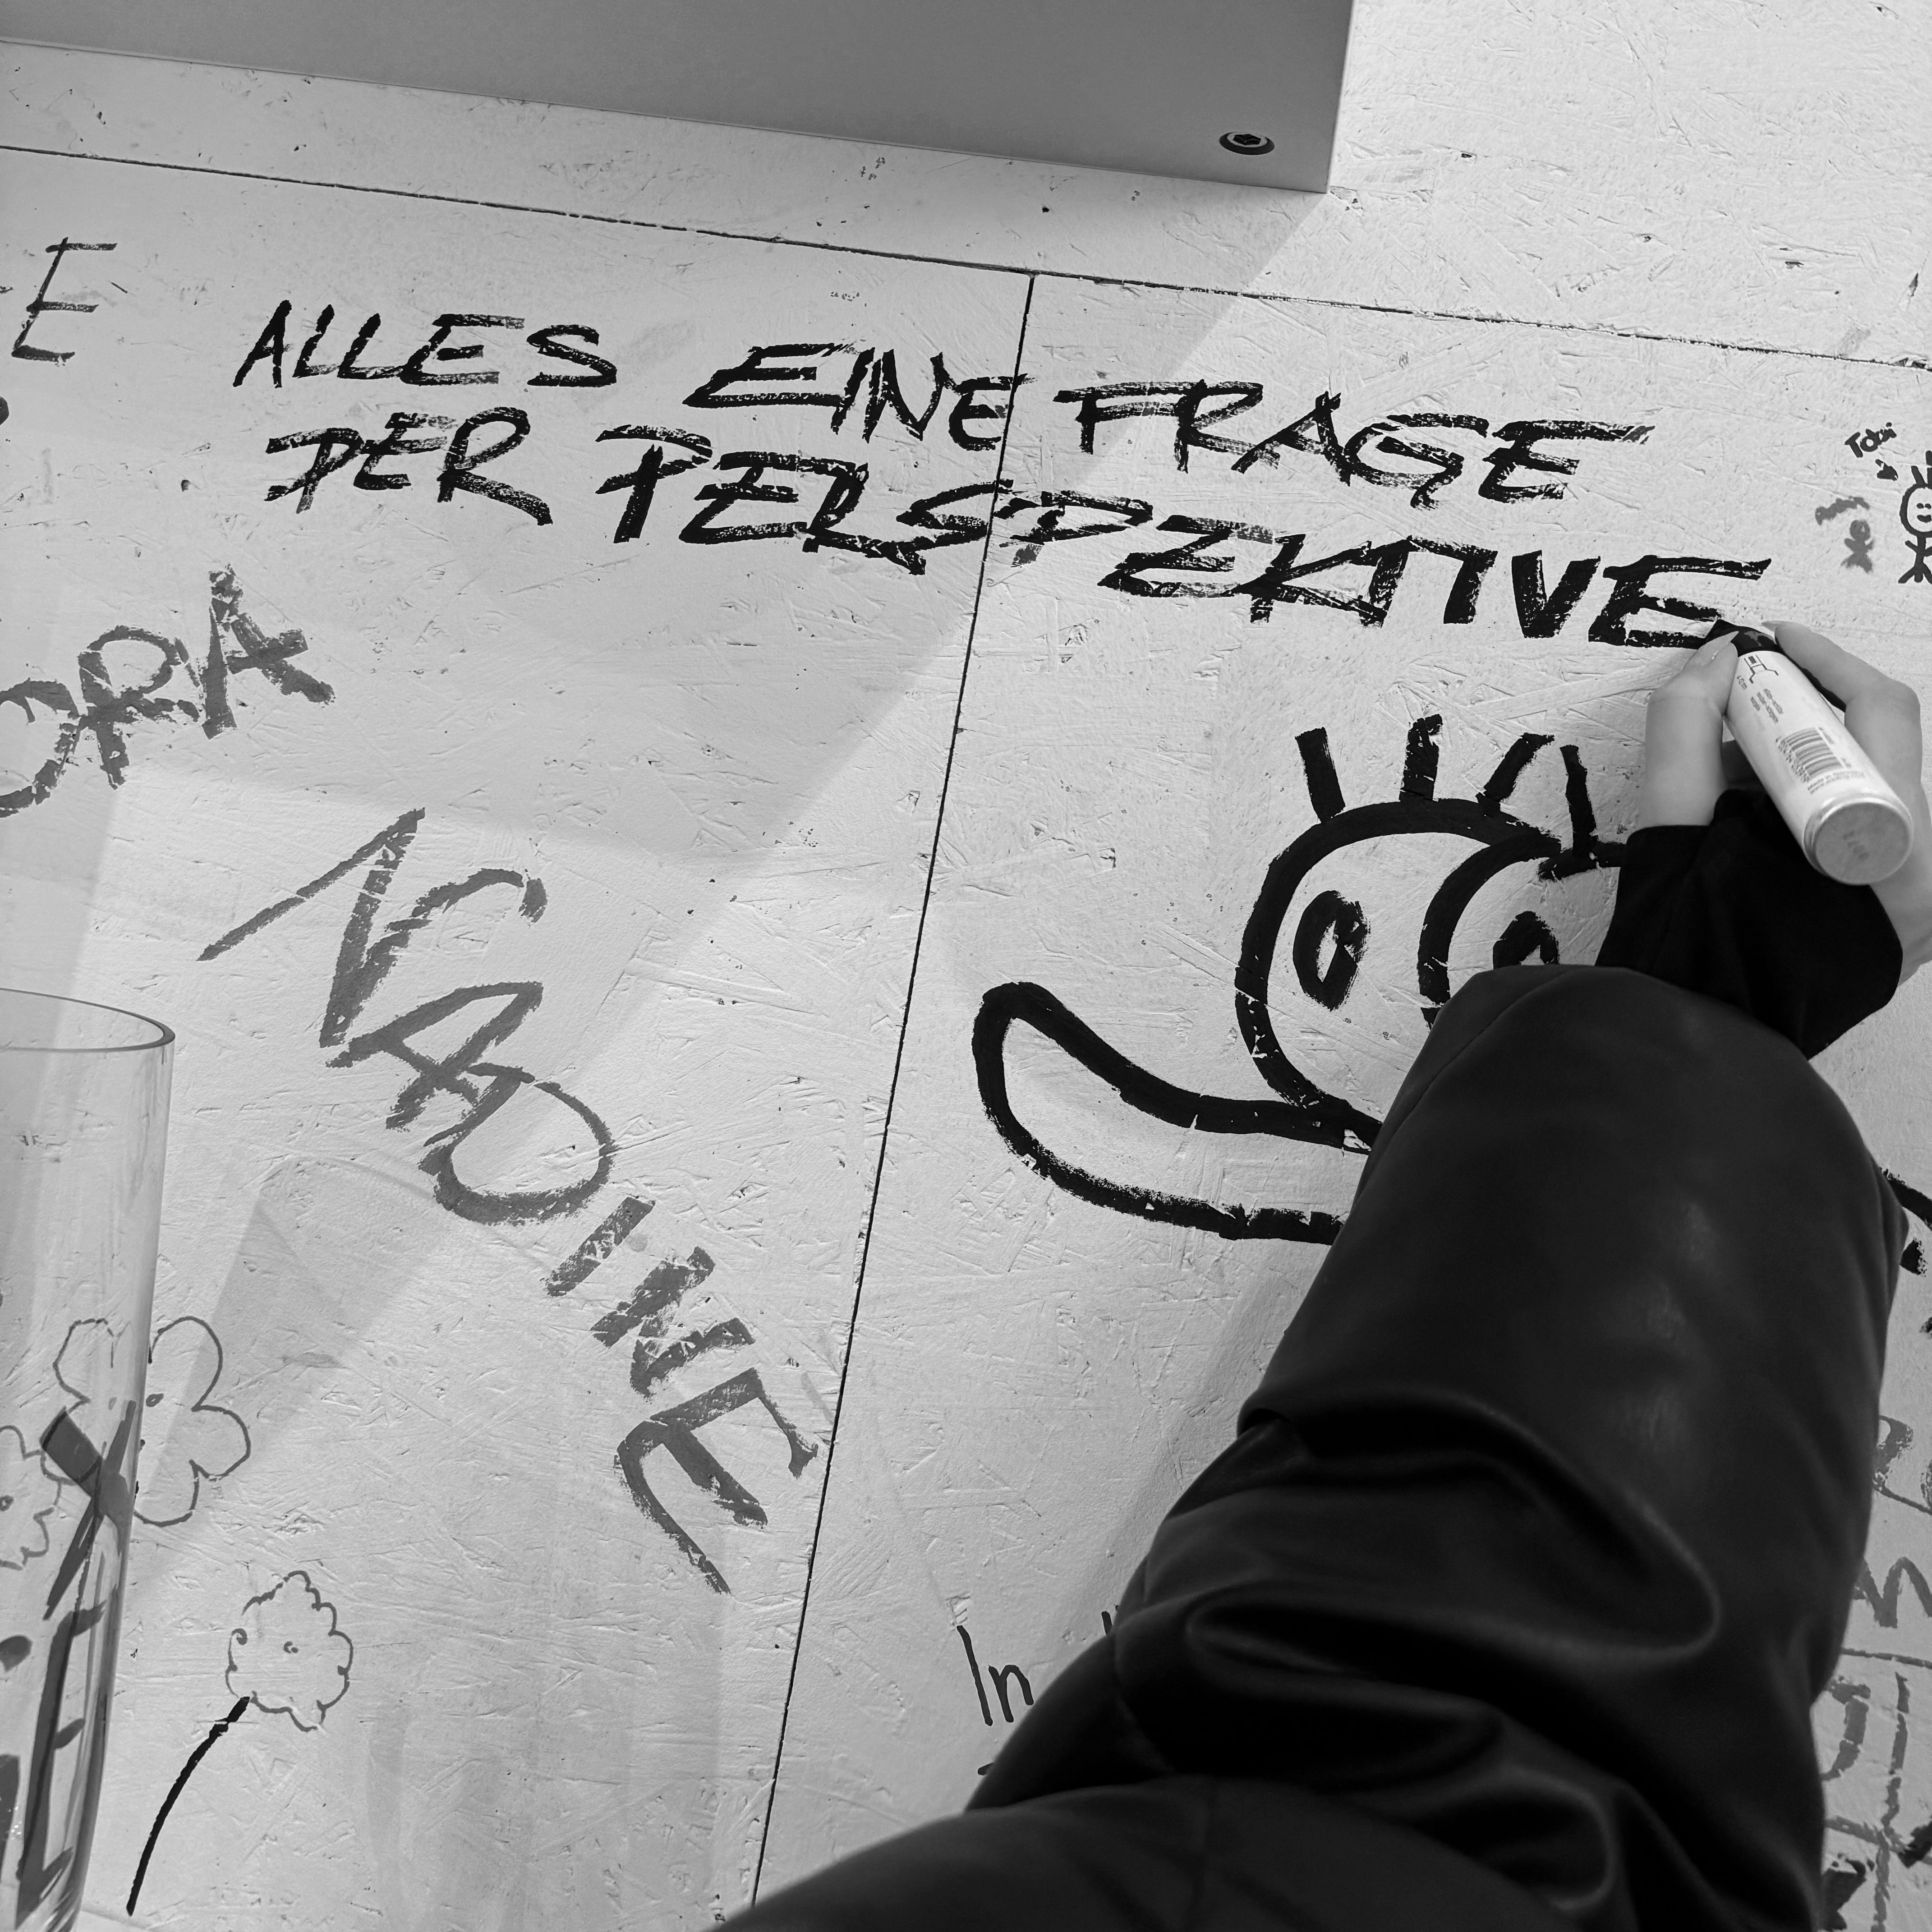 ALLES EINE FRAGE
DER PERSPEKTIVE
Tobi
ORA
NADINE
In